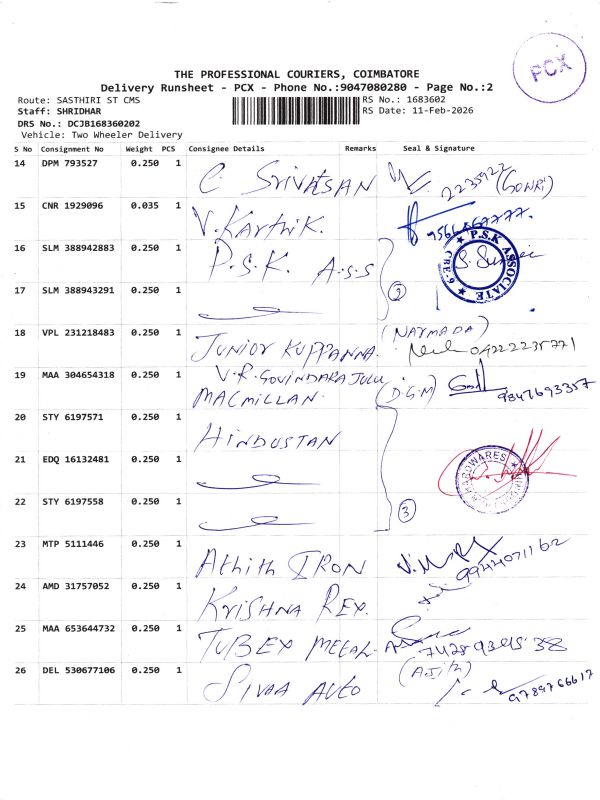 PCX
THE PROFESSIONAL COURIERS, COIMBATORE
Delivery Runsheet - PCX - Phone No.:9047080280 - Page No.:2
Route: SASTHIRI ST CMS
Staff: SHRIDHAR
DRS No.: DCJB168360202
Vehicle: Two Wheeler Delivery
RS No.: 1683602
RS Date: 11-Feb-2026
S No Consignment No Weight PCS Consignee Details Remarks Seal & Signature
14 DPM 793527 0.250 1 C. SRIVATSAN 2235922 (GOWRI)
15 CNR 1929096 0.035 1 V. Karthik.
16 SLM 388942883 0.250 1 P.S.K. A.S.S
P.S.K ASSOCIATE CBE. 6
17 SLM 388943291 0.250 1 2
18 VPL 231218483 0.250 1 JUNIOR KUPPANNA. (NARMADA) 04222235771
19 MAA 304654318 0.250 1 V.R. GOVINDARAJULU (D.G.M) 9847693357
MACMILLAN.
20 STY 6197571 0.250 1 HINDUSTAN
21 EDQ 16132481 0.250 1
HARDWARES
22 STY 6197558 0.250 1 3
23 MTP 5111446 0.250 1 Athith IRON
24 AMD 31757052 0.250 1 KRISHNA REX.
25 MAA 653644732 0.250 1 TUBEX METAL.
26 DEL 530677106 0.250 1 SIVAA AUTO (Ajith) 9789766617